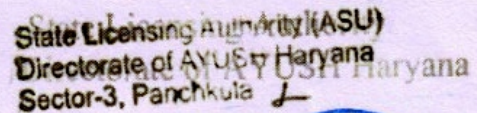 State Licensing Authority (ASU)
Directorate of AYUSH Haryana
Sector-3, Panchkula